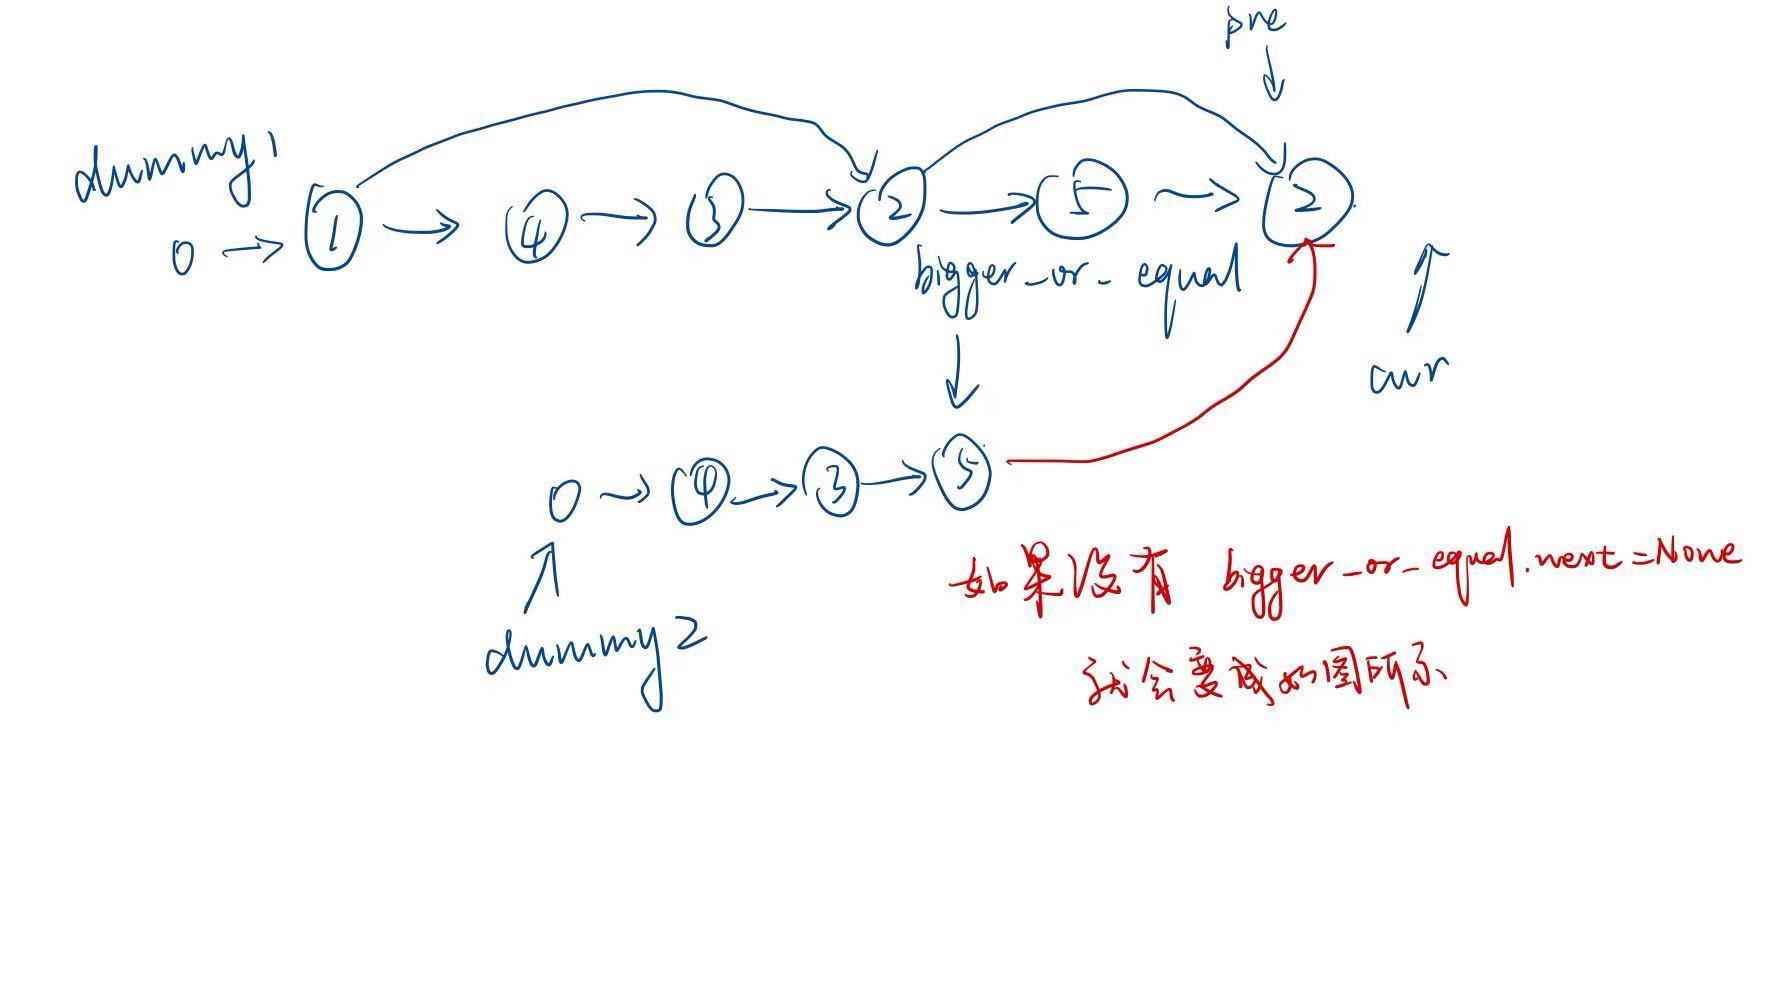 pre
dummy1
0 → 1 → 4 → 3 → 2 → 5 → 2
bigger_or_equal
cur
0 → 4 → 3 → 5
dummy2
如果没有 bigger_or_equal.next=None
就会变成如图所示